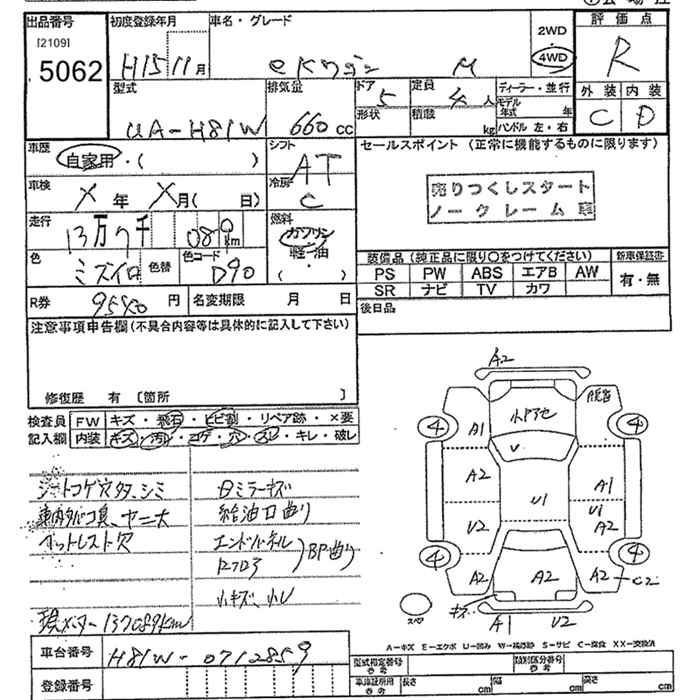 出品番号 初度登録年月 車名・グレード 評価点
[2109]
5062
H15 11月 eKワゴン M
2WD
4WD
R
型式 排気量 ドア 定員 ディーラー・並行 外装 内装
5 4人 モデル年式 年
UA-H81W 660cc 形状 積載 kg ハンドル 左・右 C D
車歴 シフト セールスポイント (正常に機能するものに限ります)
自家用・( ) AT
車検 冷房
X年 X月( 日) C
売りつくしスタート
ノークレーム車
走行 燃料
13万7千 080km ガソリン
軽油
・( )
色 色替 色コード 装備品 (純正品に限り○をつけてください) 新車保証書
ミズイロ D90 PS PW ABS エアB AW 有・無
SR ナビ TV カワ
R券 9540円 名変期限 月 日 後日品
注意事項申告欄(不具合内容等は具体的に記入して下さい)
修復歴 有 [箇所 ]
検査員 FW キズ・飛石・ヒビ割・リペア跡・×要
記入欄 内装 キズ・汚レ・コゲ・穴・スレ・キレ・破レ
シートコゲ穴タ、シミ
車内タバコ臭、ヤニ大
給油口曲り
エンドパネル
BP曲り
小キズ、小レ
現メーター 137089km
A2
A1
V
A2
V2
U1
A1
A2
A2
A2
A2
C2
キズ
A1 V2
4
4
4
4
スペア
A-キズ E-エクボ U-凹み W-補修跡 S-サビ C-腐食 XX-交換済
車台番号 H81W-0712859
登録番号
型式指定番号 参考 類別区分番号 参考
車庫証明用 参考 長さ cm 幅 cm 高さ cm